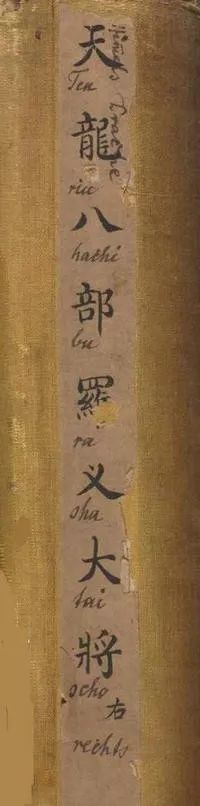 天
Ten
龍
riu
八
hachi
部
bu
羅
ra
义
sha
大
tai
將
scho
右
rechts